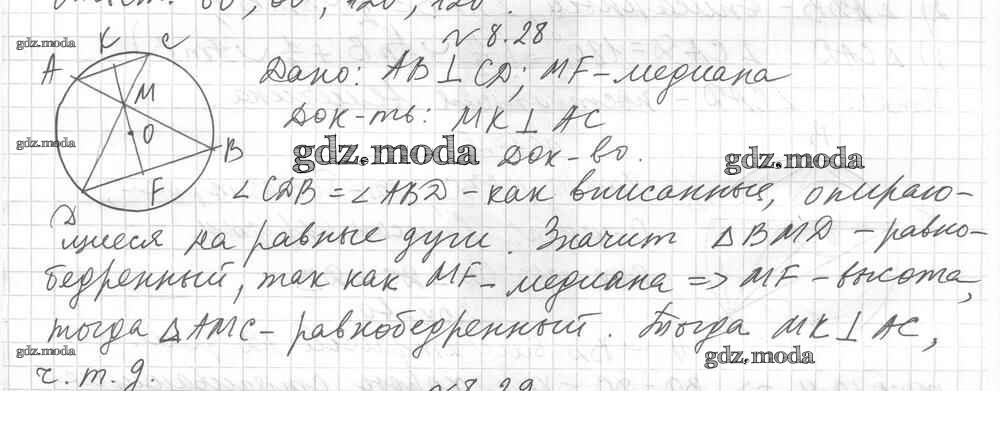 № 8.28
Дано: AB⊥CD; MF – медиана
Док-ть: MK⊥AC
Док-во.
∠CDB = ∠ABD – как вписанные, опираю-
щиеся на равные дуги. Значит △BMD – равно-
бедренный, так как MF – медиана => MF – высота,
тогда △AMC – равнобедренный. Тогда MK⊥AC,
ч.т.д.
№ 8.29
A
K
C
M
O
B
F
D
gdz.moda
gdz.moda
gdz.moda
gdz.moda
gdz.moda
gdz.moda